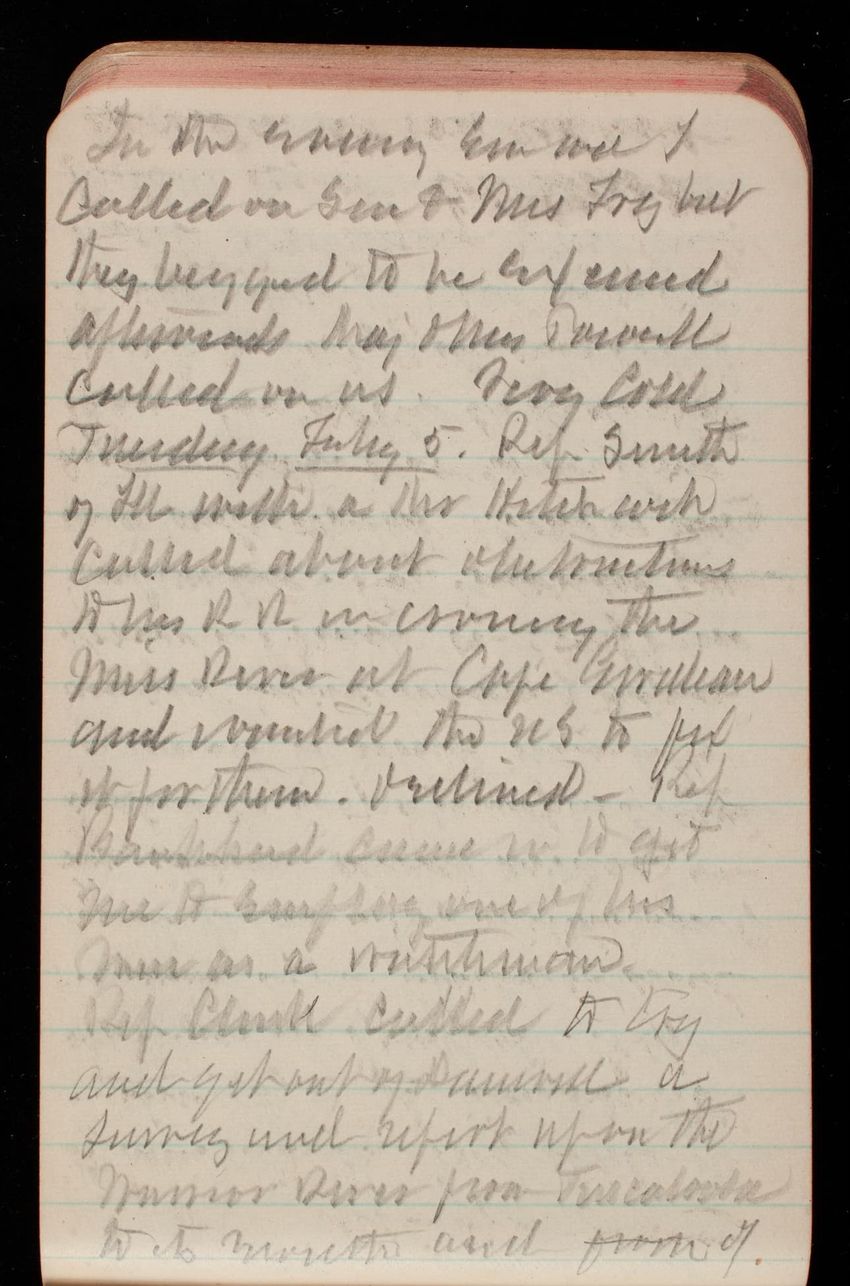 In the evening Em and I
Called on Gen & Mrs Fry but
they begged to be excused
afterwards Maj & Mrs Powell
called on us. Very Cold
Tuesday Feby 5. Rep Smith
of Ill with a Mr
Called about obstructions
to his R R in crossing the
Miss River at Cape Girardeau
and wanted the US to fix
it for them. Declined - Rep
Bankhead came in to get
me to employ one of his
men as a watchman.
Rep Clark called to try
and get out of Damrell a
survey and report upon the
Warrior River from Tuscaloosa
to its mouth and from of